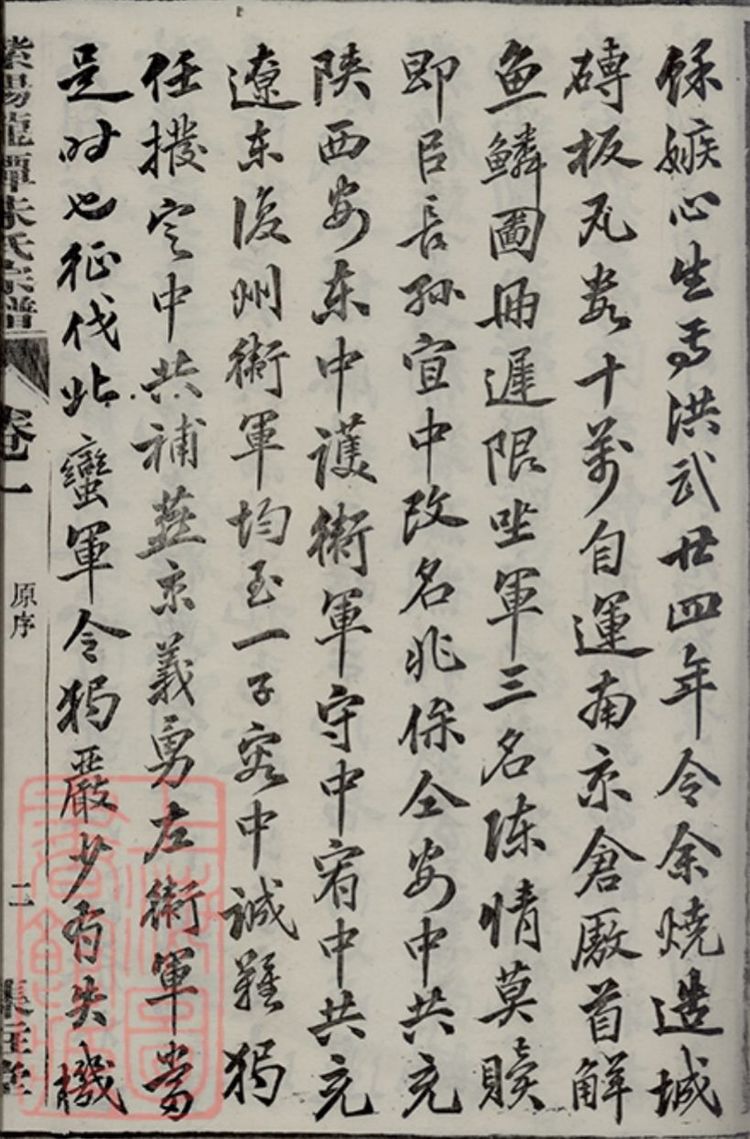 餘嫉心生焉洪武廿四年令余燒造城
磚板瓦數十萬自運南京倉厫首解
魚鱗圖冊遲限坐軍三名陳情莫贖
即臣長孫宜中改名兆保仝安中共充
陝西安東中護衛軍守中宥中共充
遼東復州衛軍均玉一子容中誠難獨
任撥定中共補燕京義勇左衛軍當
是時也征伐北蠻軍令獨嚴少有失機
紫陽龍潭朱氏宗譜 卷一 原序 二